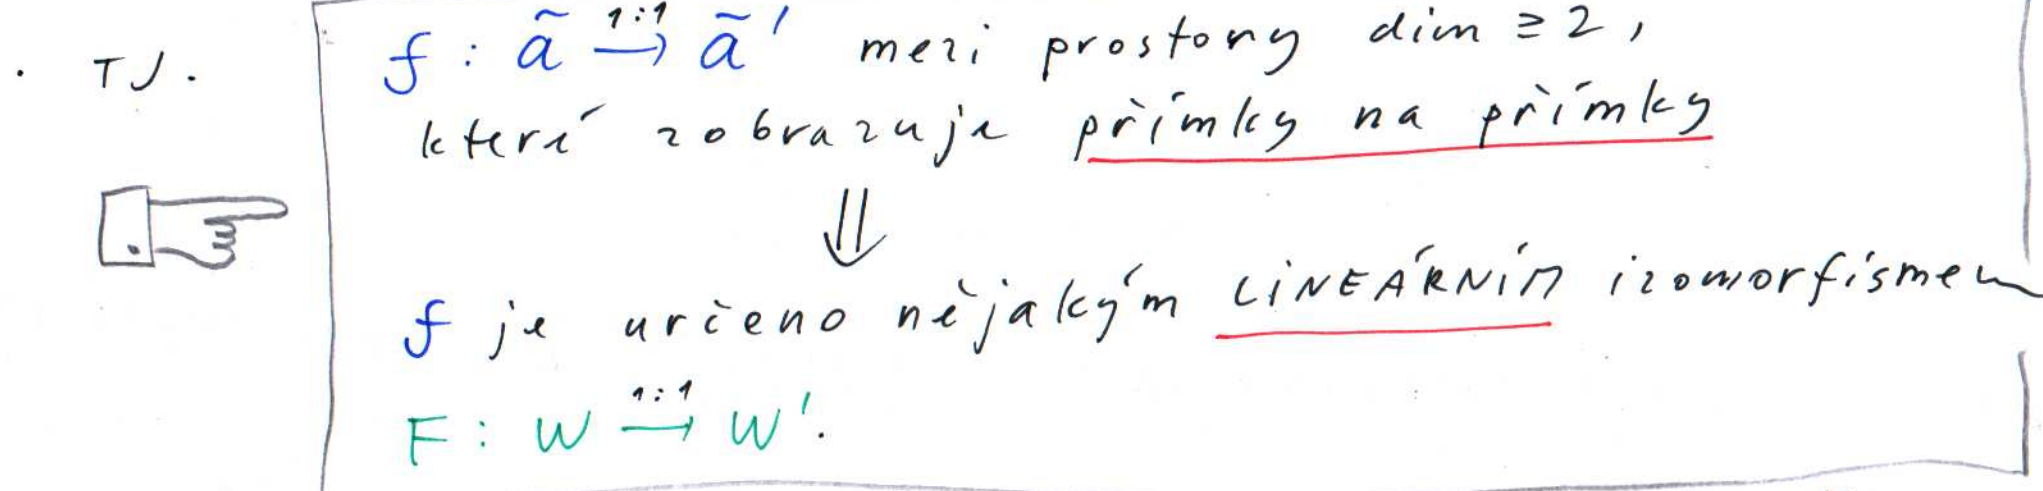 · TJ. f : ã 1:1→ ã' mezi prostory dim ≥ 2,
které zobrazuje přímky na přímky
⇓
f je určeno nějakým LINEÁRNÍM izomorfismem
F : W 1:1→ W'.